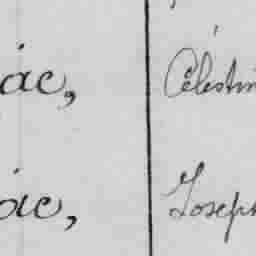 ac, Célestin
ac, Joseph